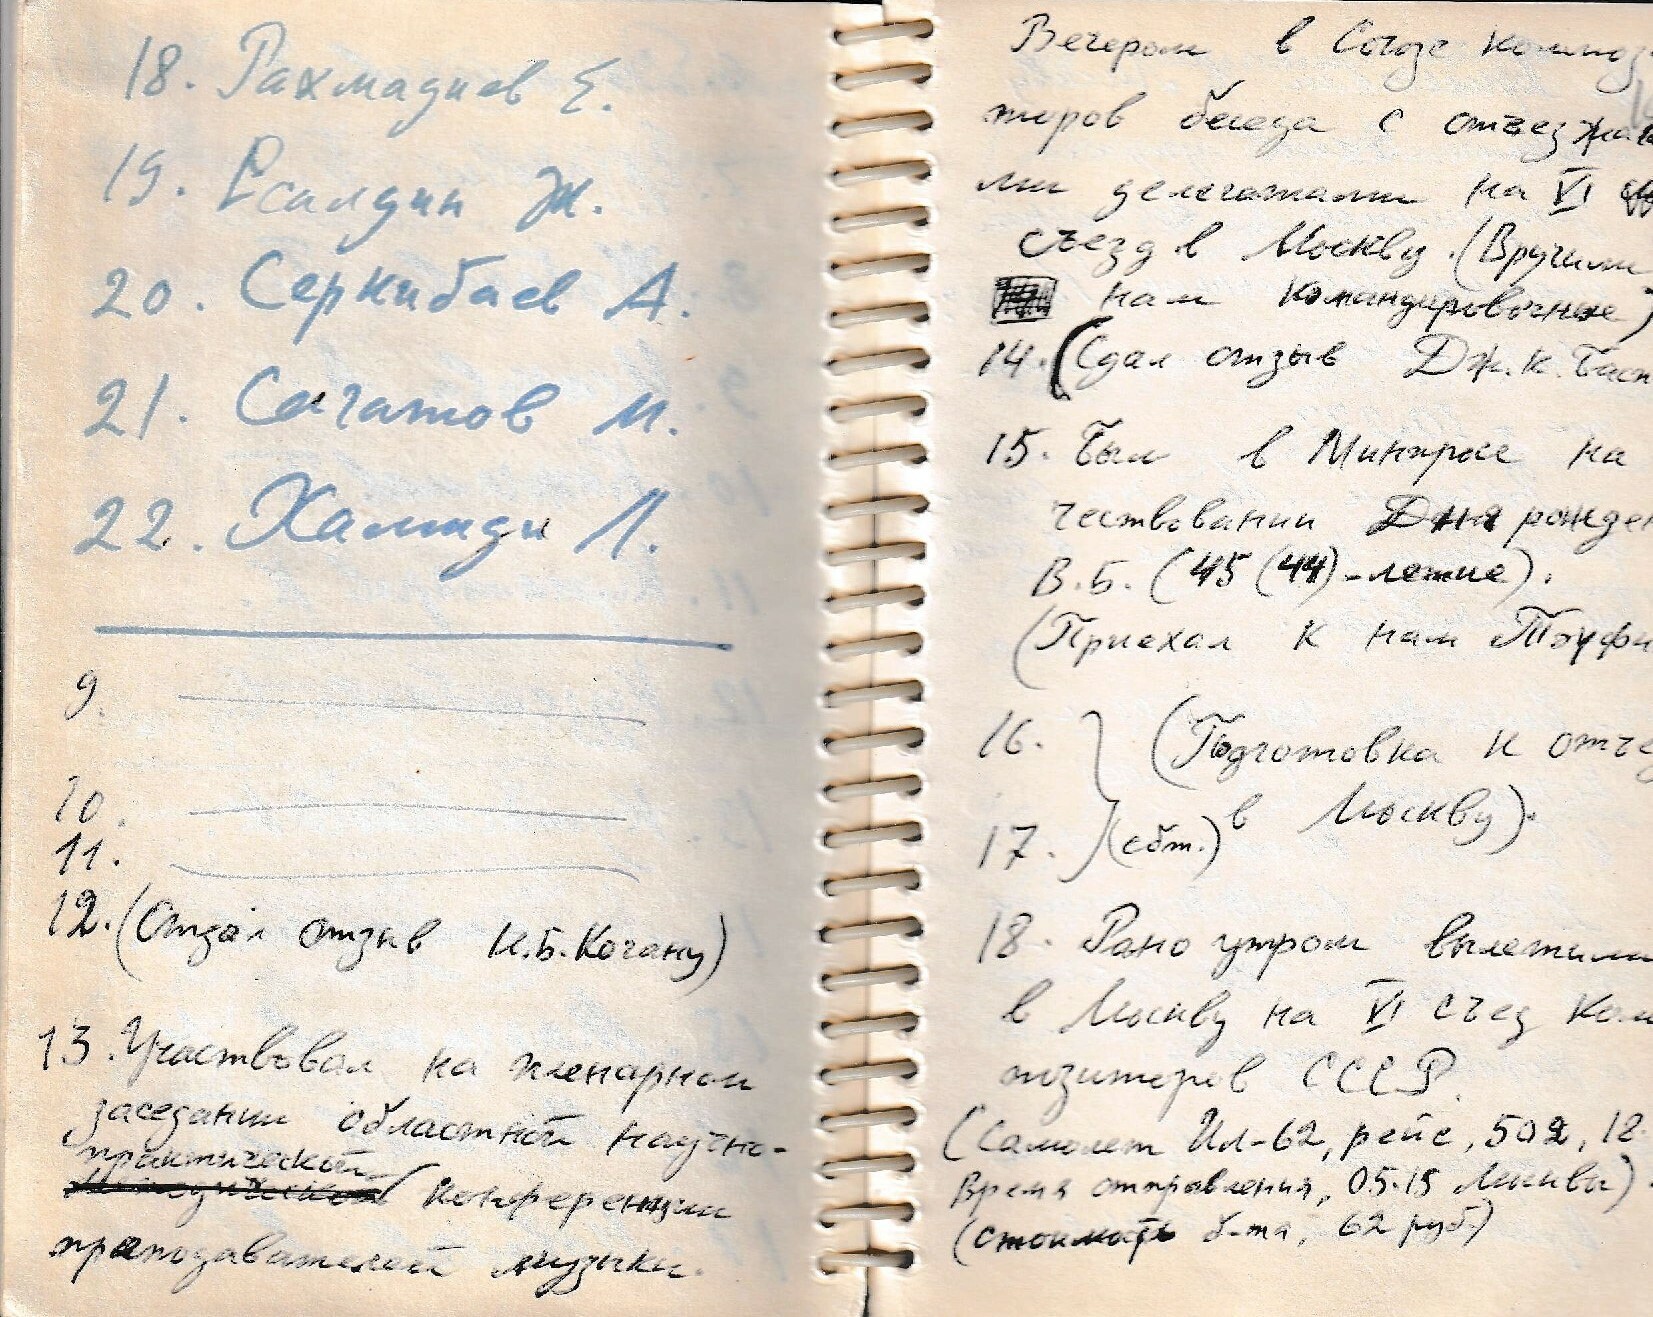 18. Рахмадиев Е.
19. Есалдин Ж.
20. Серкибаев А.
21. Сагатов М.
22. Хамиди Л.
9.
10.
11.
12. (Отдал отзыв К.Б. Когану)
13. Участвовал на пленарном
заседании областной научно-
практической
конференции
преподавателей музыки.
Вечером в Союзе компози
торов беседа с отъезжаю
ми делегатами на VI
съезд в Москву. (Вручили
нам командировочные)
14. (Сдал отзыв Дж. К. Басп
15. Был в Минпросе на
чествовании Дня рожден
В.Б. (45 (44)-летие).
(Приехал к нам Тауфи
16. (Подготовка к отъез
в Москву).
17. (сбт.)
18. Рано утром вылетили
в Москву на VI съезд Ком
позиторов СССР.
(Самолет Ил-62, рейс, 502, 18.
Время отправления, 05.15 Москвы).
(стоимость б-та, 62 руб.)